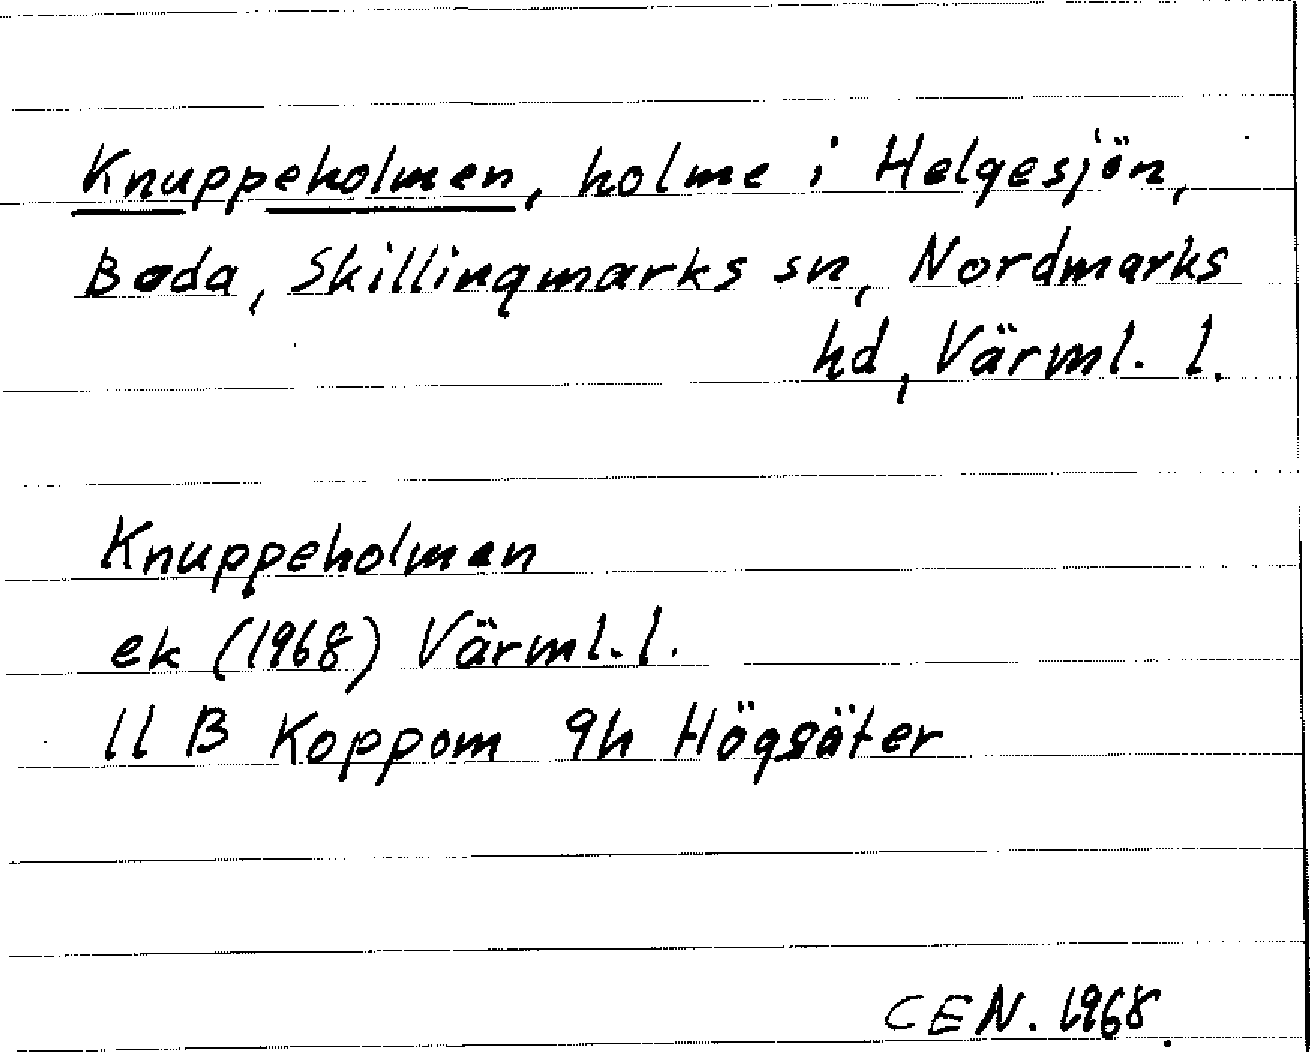 Knuppeholmen, holme i Helgesjön,
Boda, Skillingmarks sn, Nordmarks
hd, Värml. l.
Knuppeholmen
ek (1968) Värml. l.
11 B Koppom 9h Högsäter
CEN. 1968.